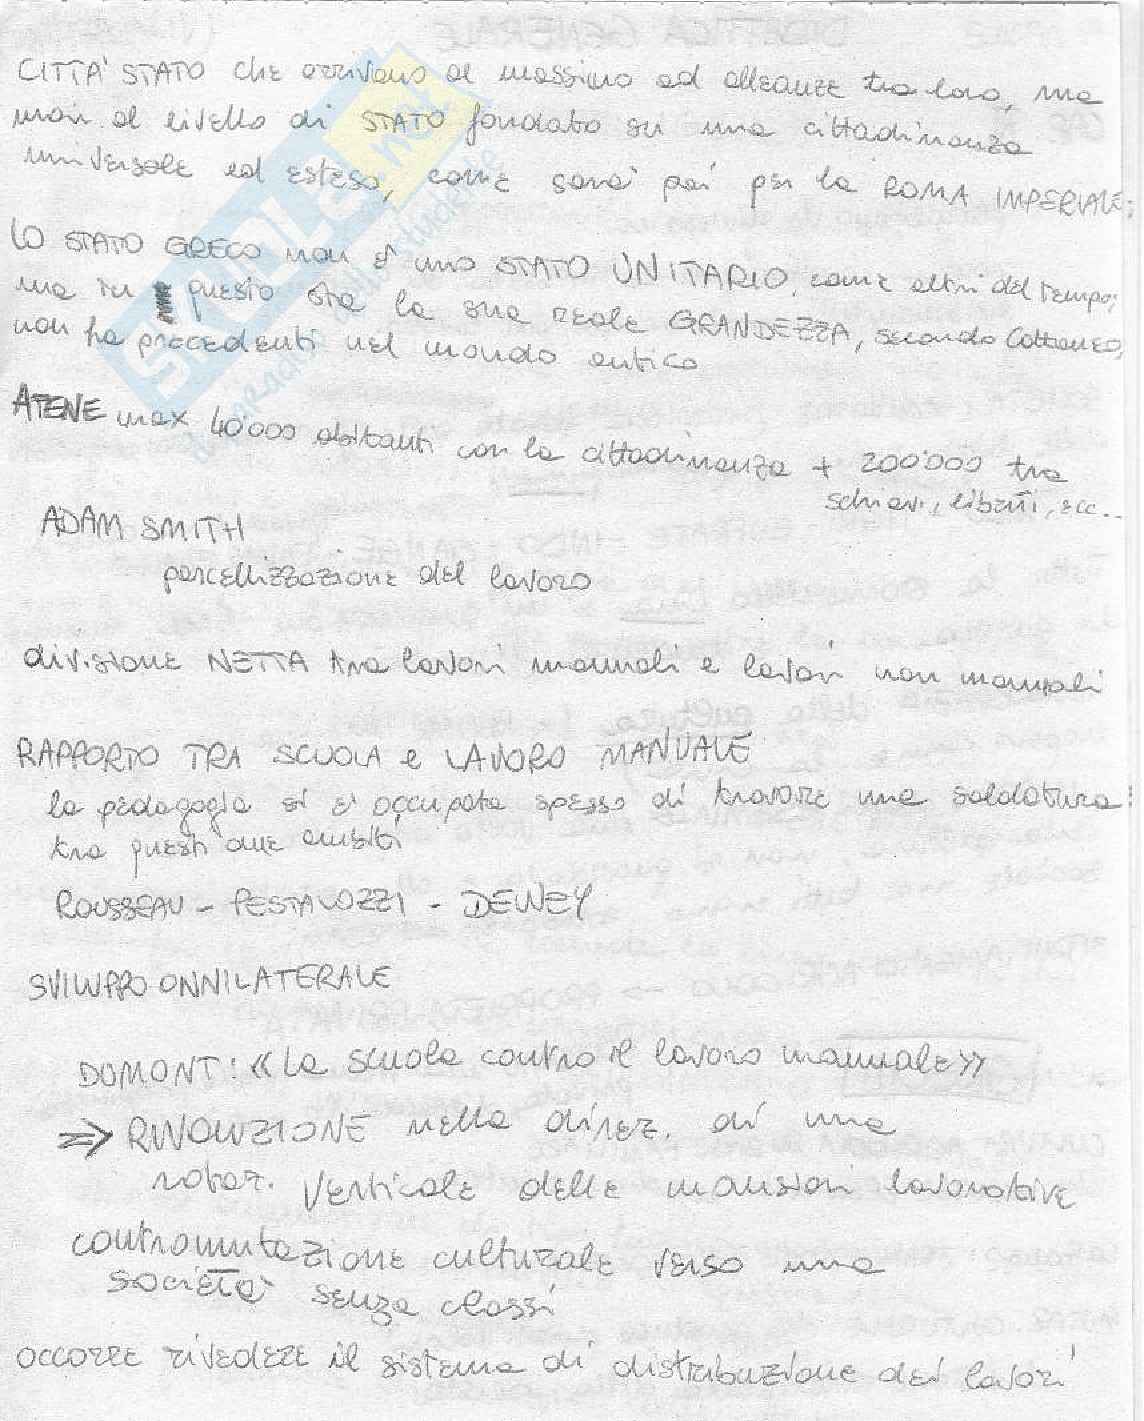 CITTA' STATO che arrivano al massimo ad alleanze tra loro, ma
mai al livello di STATO fondato su una cittadinanza
universale ed estesa, come sarà poi per la ROMA IMPERIALE;
LO STATO GRECO non è uno STATO UNITARIO, come altri del tempo;
ma in questo sta la sua reale GRANDEZZA, secondo Cattaneo,
non ha precedenti nel mondo antico
ATENE max 40'000 abitanti con la cittadinanza + 200'000 tra
schiavi, liberti, ecc...
ADAM SMITH
parcellizzazione del lavoro
divisione NETTA tra lavori manuali e lavori non manuali
RAPPORTO TRA SCUOLA e LAVORO MANUALE
la pedagogia si è occupata spesso di trovare una saldatura
tra questi due ambiti
ROUSSEAU - PESTALOZZI - DEWEY
SVILUPPO ONNILATERALE
DOMONT: «La scuola contro il lavoro manuale»
⇒ RIVOLUZIONE nella direz. di una
rotaz. verticale delle mansioni lavorative
contromutazione culturale verso una
società senza classi
occorre rivedere il sistema di distribuzione dei lavori